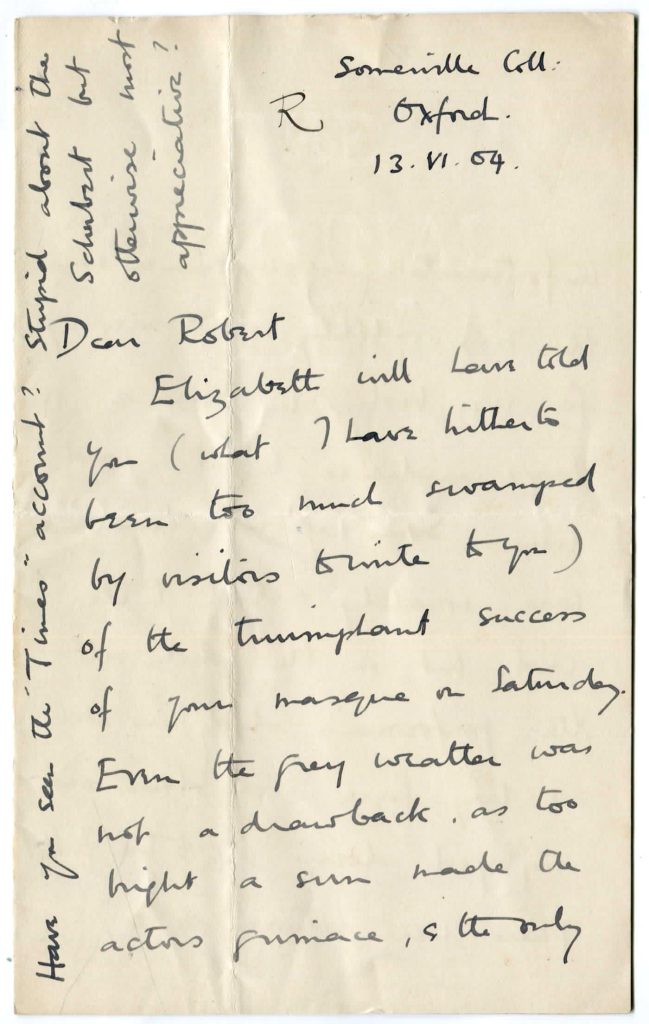 Somerville Coll:
R Oxford.
13.VI.04.
Dear Robert
Elizabeth will have told
you (what I have hitherto
been too much swamped
by visitors to write to you)
of the triumphant success
of your masque on Saturday.
Even the grey weather was
not a drawback, as too
bright a sun made the
actors grimace, & the only
Have you seen the "Times" account? Stupid about the
Schubert but
otherwise most
appreciative?